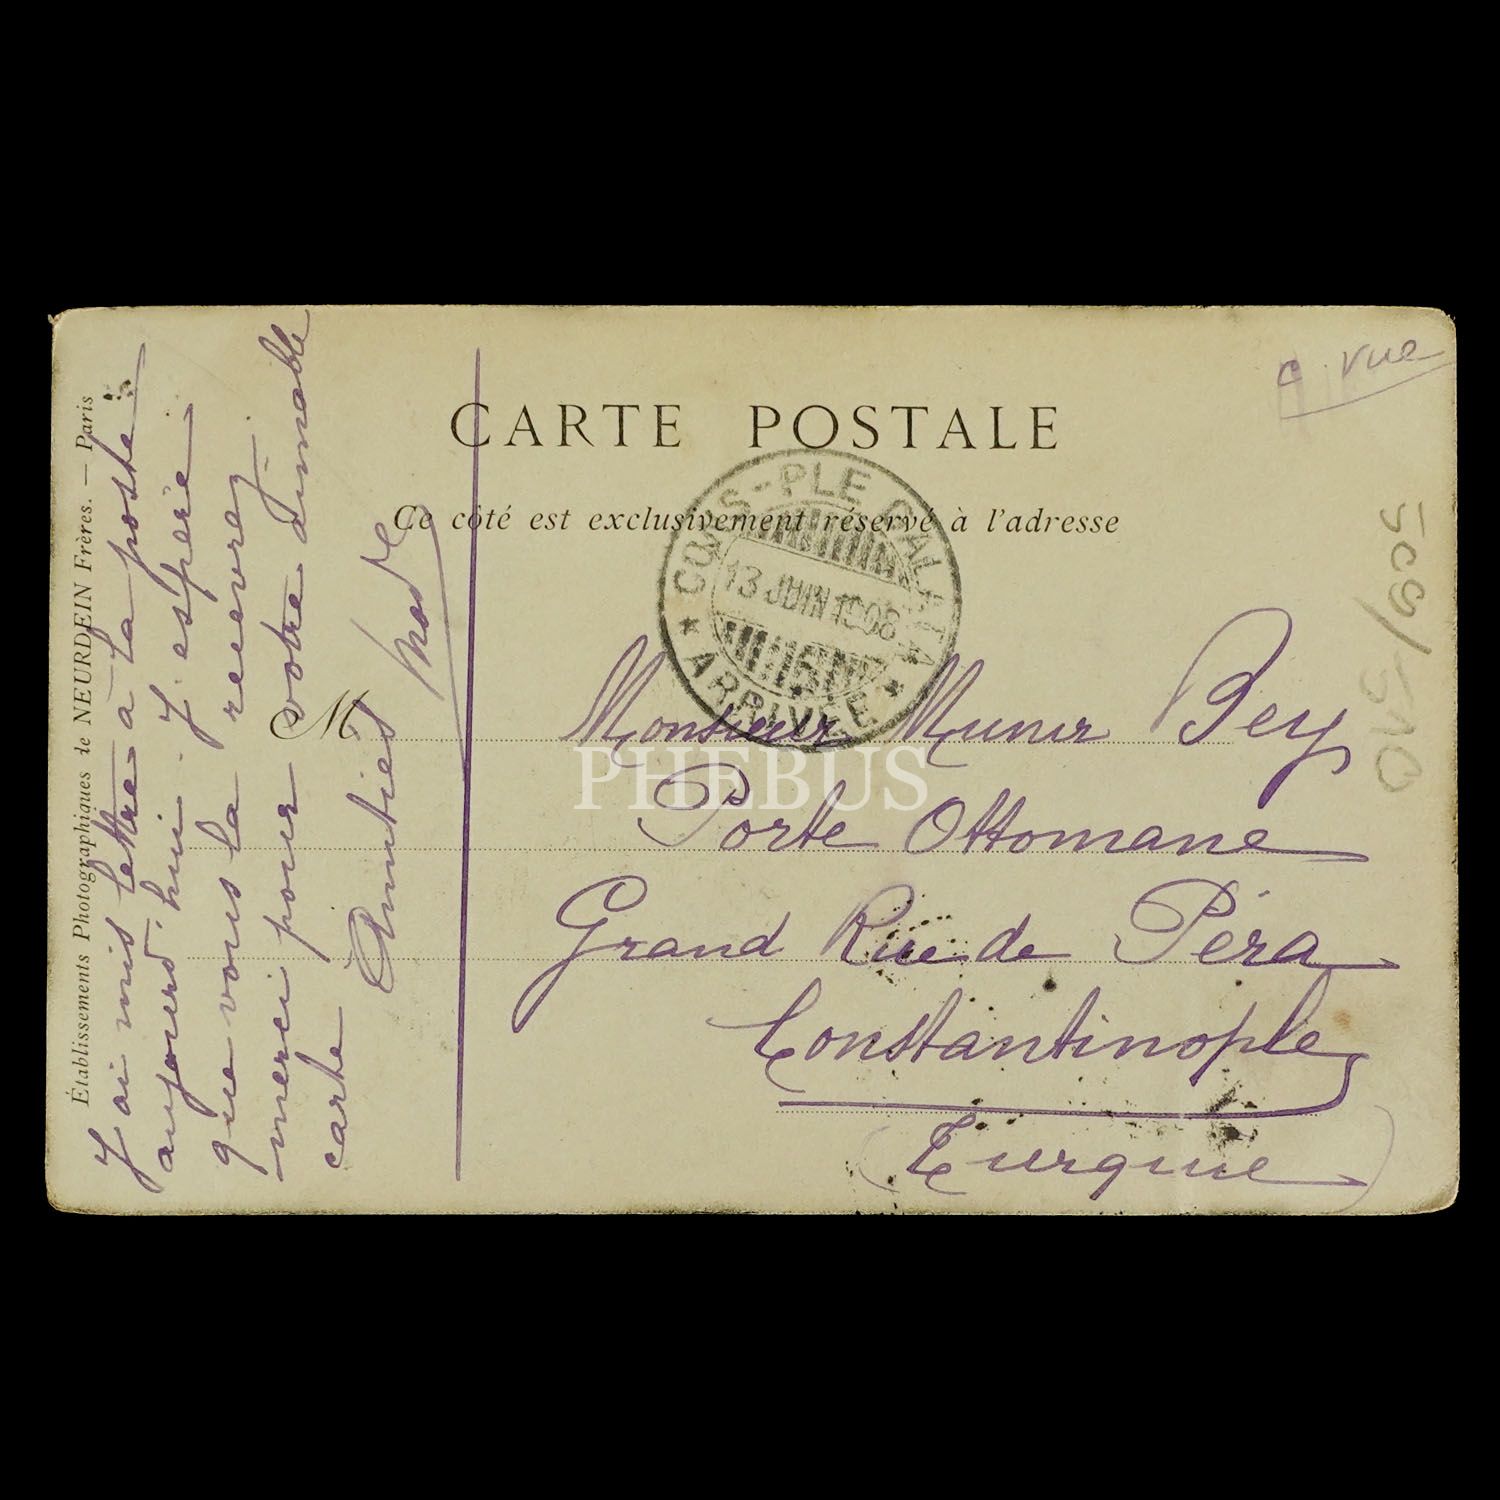 CARTE POSTALE
Ce côté est exclusivement réservé à l'adresse
c. vue
Établissements Photographiques de NEURDEIN Frères. — Paris
J'ai mis lettre à la poste
aujourd'hui. J'espère
que vous la recevrez
merci pour votre aimable
carte
Amitiés
CONS-PLE GALATA
13 JUIN 1908
ARRIVÉE
M
Monsieur Munir Bey
PHEBUS
Porte Ottomane
Grand Rue de Péra
Constantinople
(Turquie)